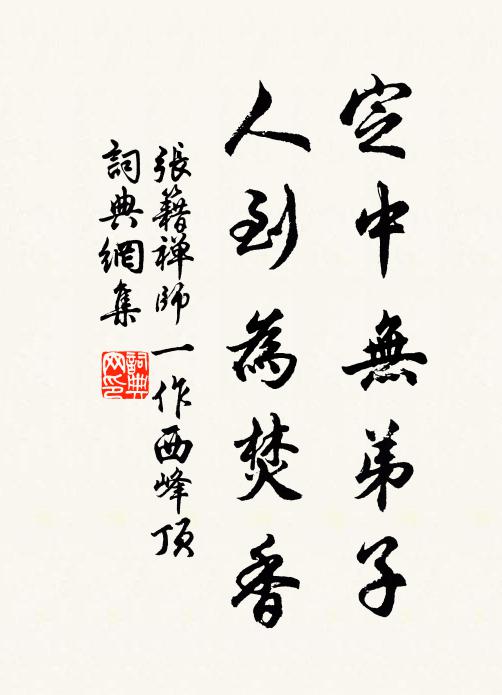 定中無弟子
人到為焚香
張籍禅師一作西峰頂
詞典網集
詞典网印